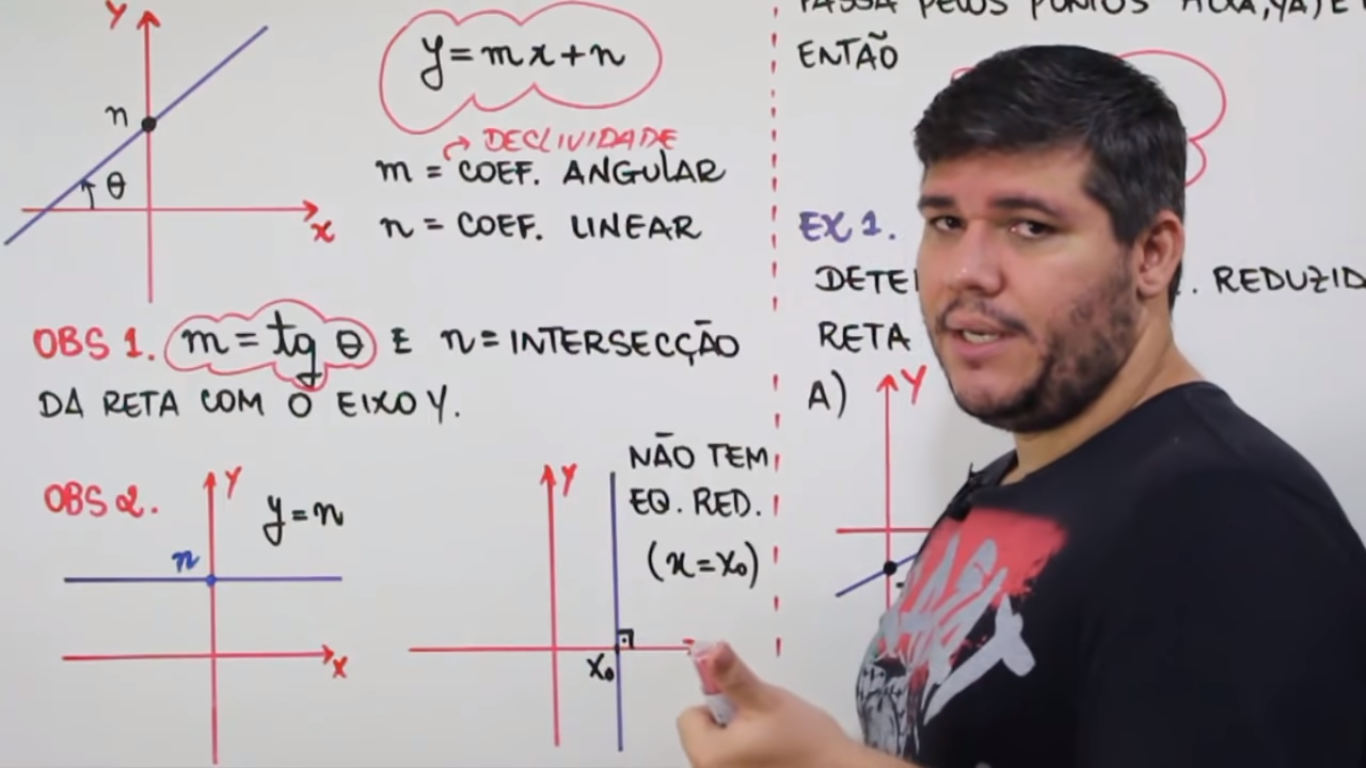 Y
n
θ
x
y = mx + n
DECLIVIDADE
m = COEF. ANGULAR
n = COEF. LINEAR
OBS 1. m = tg θ E n = INTERSECÇÃO
DA RETA COM O EIXO Y.
OBS 2.
Y
y = n
n
x
Y
NÃO TEM
EQ. RED.
(x = x₀)
x₀
PASSA PELOS PONTOS
ENTÃO
EX 1.
REDUZID
RETA
A)
Y